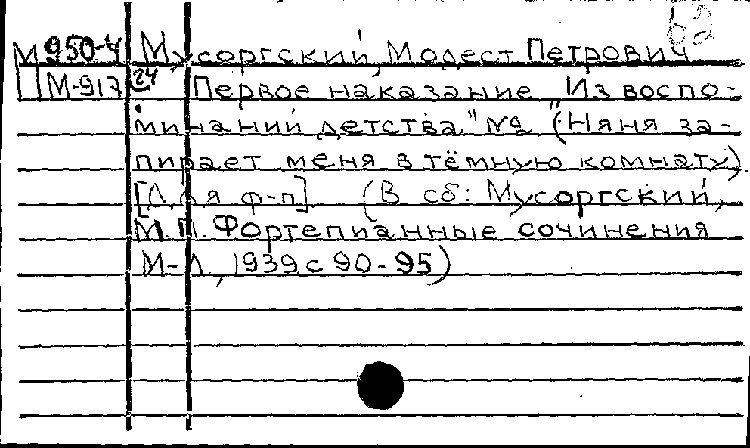 62
М 950-4 Мусоргский, Модест Петрович
П М-917 24 Первое наказание „Из воспо-
минаний детства" №2 (Няня за-
пирает меня в тёмную комнату)
[Для ф-п] (В сб: Мусоргский,
М.П. Фортепианные сочинения
М-Л, 1939 с 90-95)